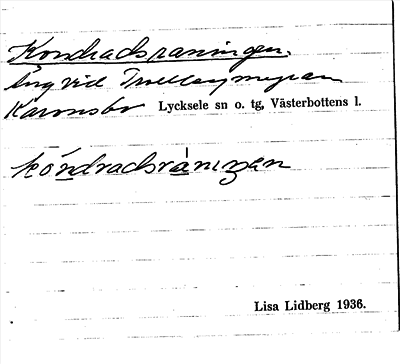 Kondradsraningen.
Äng vid Trollasmyran
Karonsbo Lycksele sn o. tg, Västerbottens l.
kóndradsrànıŋen
Lisa Lidberg 1936.